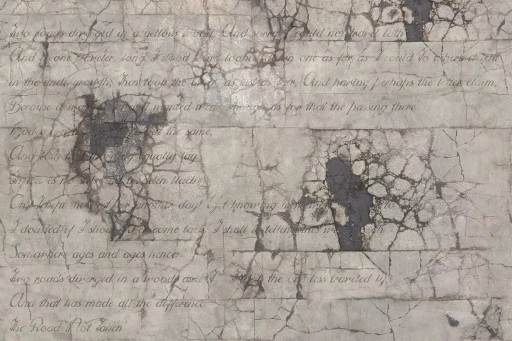 Two roads diverged in a yellow wood, And sorry I could not travel both
And be one traveler, long I stood And looked down one as far as I could To where it bent
in the undergrowth; Then took the other, as just as fair, And having perhaps the better claim,
Because it was grassy and wanted wear; Though as for that the passing there
Had worn the same,
And both that morning equally lay
In leaves no step had trodden black.
Oh, I kept the first for another day! Yet knowing how way
I doubted if I should ever come back. I shall be telling this with a sigh
Somewhere ages and ages hence:
Two roads diverged in a wood, and I— I took the one less traveled by,
And that has made all the difference.
The Road Not Taken